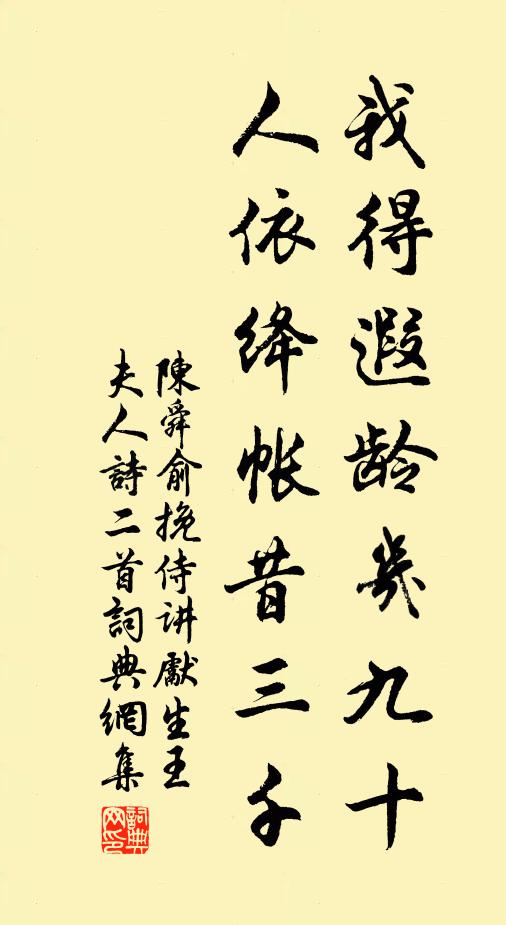 我得遐龄幾九十
人依绛帐昔三千
陳舜俞挽侍讲獻生王
夫人詩二首詞典網集
詞典网印